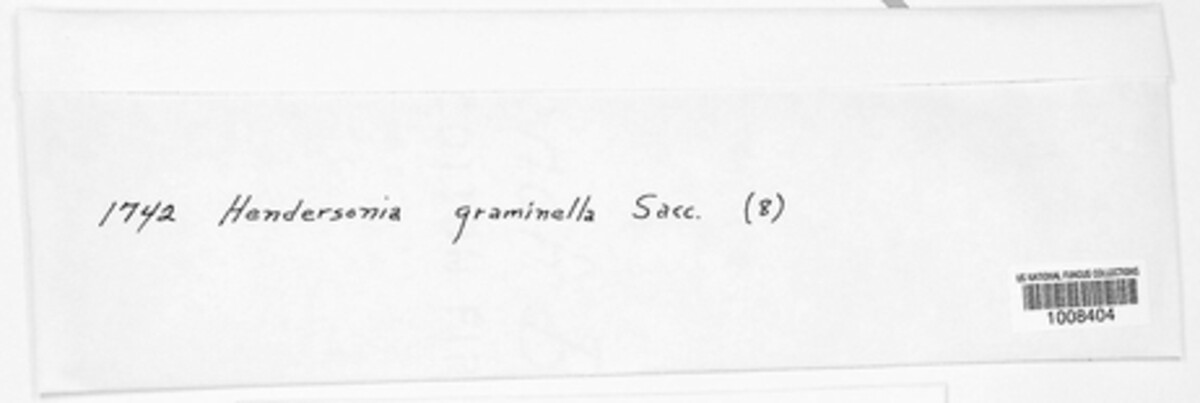 1742 Hendersonia graminella Sacc. (8)
US NATIONAL FUNGUS COLLECTIONS
1008404